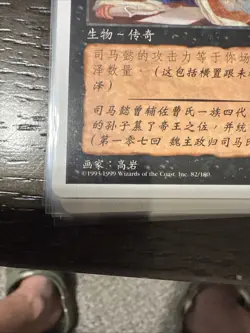 生物~传奇
司马懿的攻击力等于你场
泽数量:(这包括横置跟未
泽)
司马懿曾辅佐曹氏一族四代
的孙子篡了帝王之位,并统
(第一零七回 魏主政归司马氏
画家:高岩
©1993-1999 Wizards of the Coast, Inc. 82/180